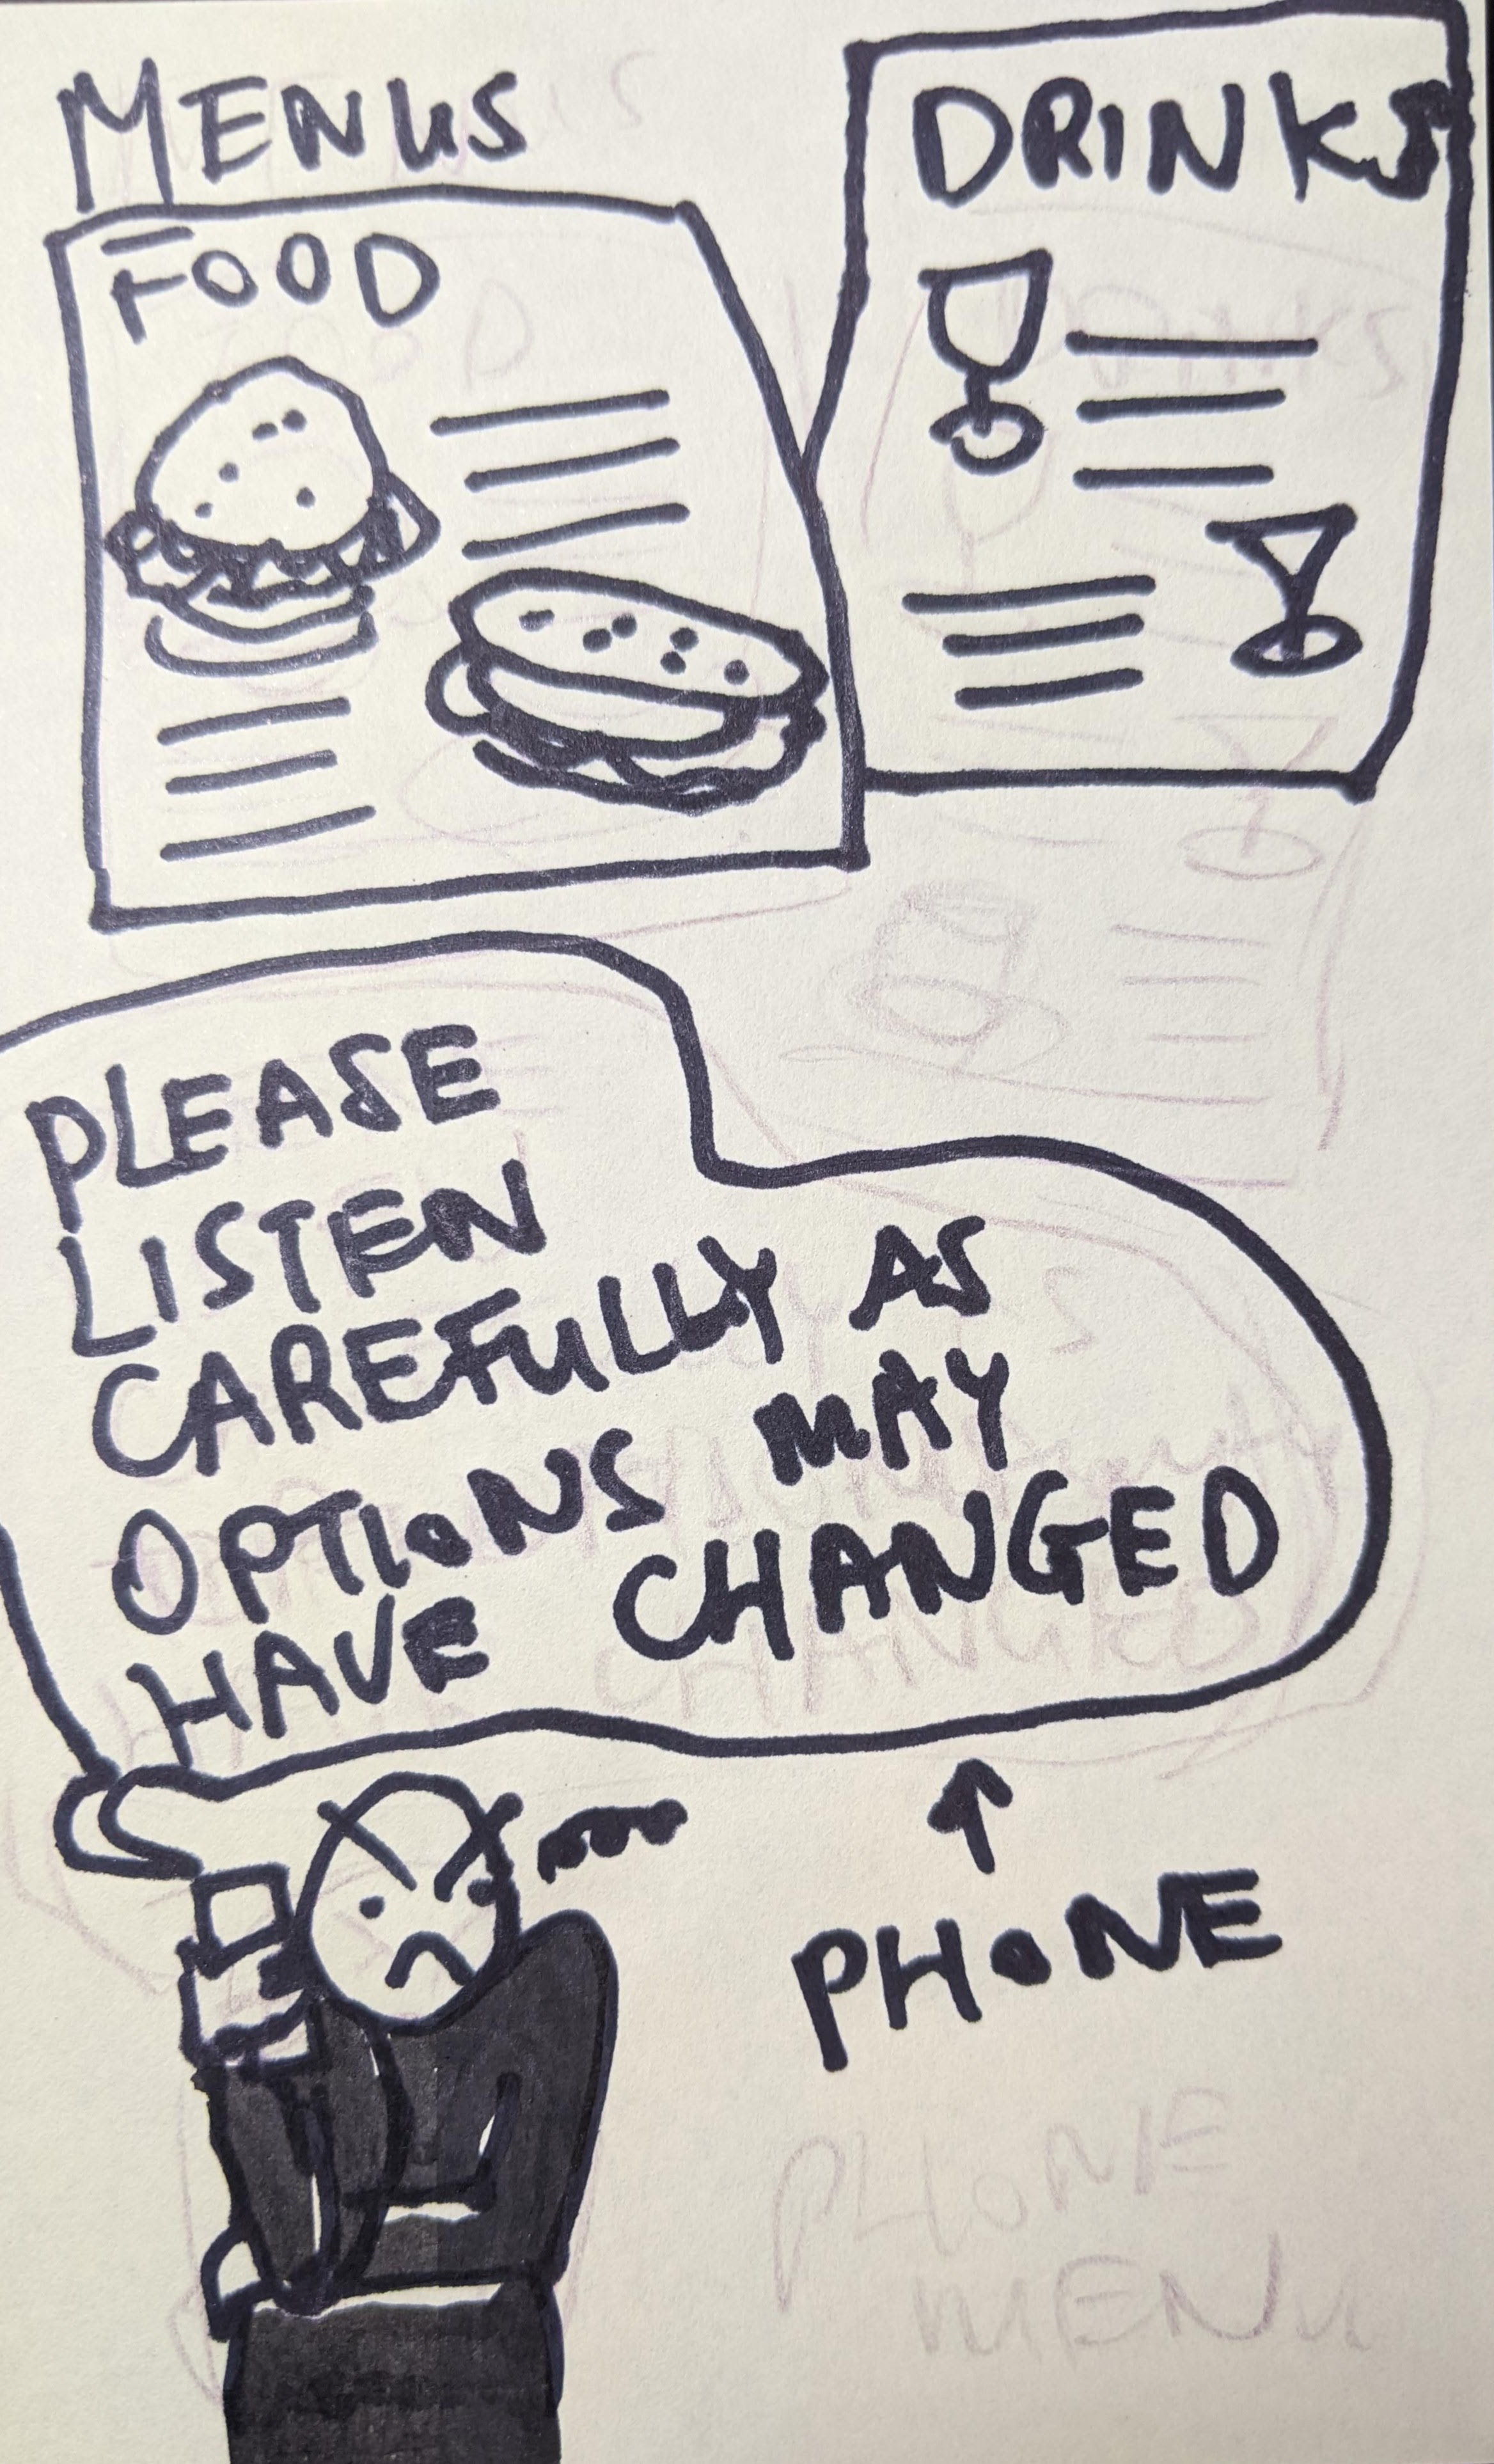 MENUS
FOOD
DRINKS
PLEASE
LISTEN
CAREFULLY AS
OPTIONS MAY
HAVE CHANGED
PHONE
PHONE
MENU